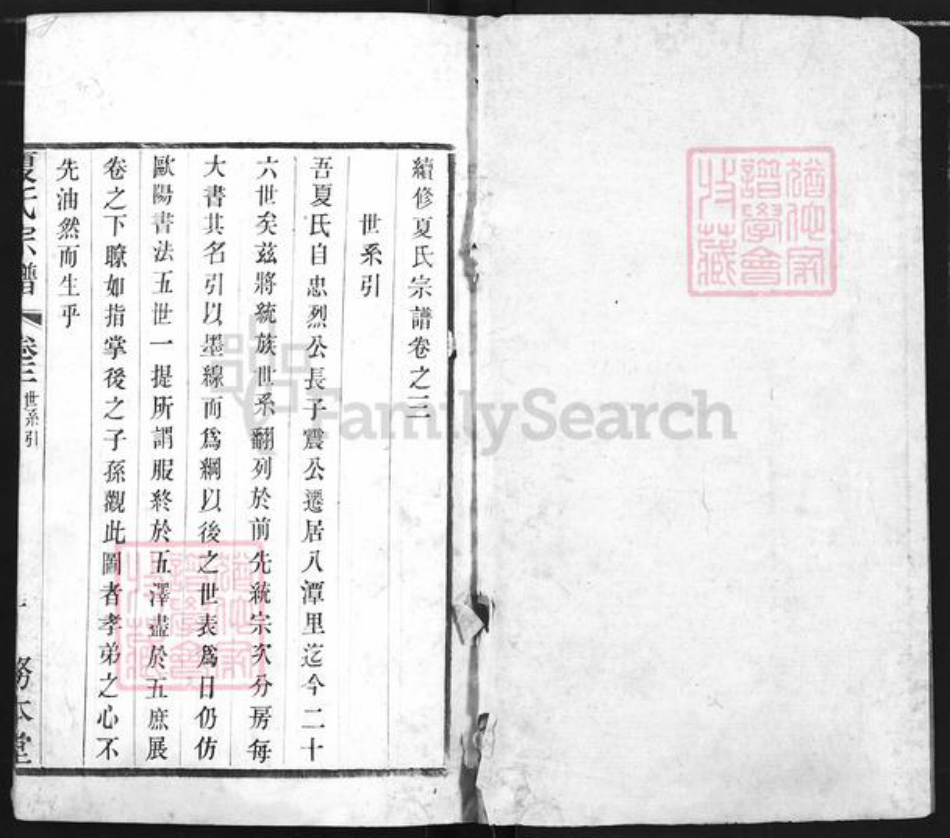 續修夏氏宗譜卷之三
世系引
吾夏氏自忠烈公長子震公遷居八潭里迄今二十
六世矣茲將統族世系翻列於前先統宗次分房每
大書其名引以墨線而爲綱以後之世表爲目仍仿
歐陽書法五世一提所謂服終於五澤盡於五庶展
卷之下瞭如指掌後之子孫觀此圖者孝弟之心不
先油然而生乎
夏氏宗譜 卷三 世系引 一 務本堂
FamilySearch